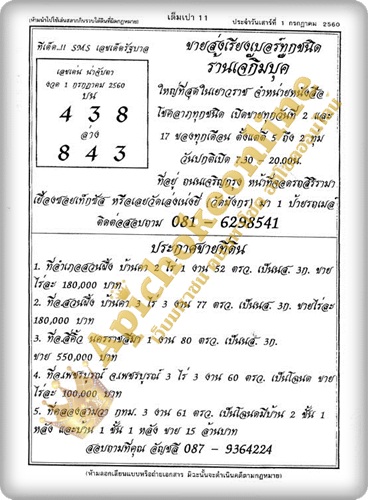 (ห้ามนำไปใช้เล่นสลากกินรวบให้ถือที่ผิดกฎหมาย)
เต็มเปา 11
ประจำวันเสาร์ที่ 1 กรกฎาคม 2560
ทีเด็ด..!! SMS เลขเด็ดรัฐบาล
เลขเด่น น่าจับตา
งวด 1 กรกฎาคม 2560
บน
4 3 8
ล่าง
8 4 3
ขายส่งเรียงเบอร์ทุกชนิด
ร้านเจ๊กิมบุ๊ค
ใหญ่ที่สุดในเยาวราช จำหน่ายหนังสือ
โชคลาภทุกชนิด เปิดขายทุกวันที่ 2 และ
17 ของทุกเดือน ตั้งแต่ตี 5 ถึง 2 ทุ่ม
วันปกติเปิด 7.30 - 20.00น.
ที่อยู่ ถนนเจริญกรุง หน้าที่จอดรถสิริรามา
เยื้องซอยเท็กซัส หรือเลยวัดเล่งเน่งยี่ (วัดมังกร) มา 1 ป้ายรถเมล์
ติดต่อสอบถาม 081 - 6298541
ประกาศขายที่ดิน
1. ที่อำเภอสวนผึ้ง บ้านคา 2 ไร่ 1 งาน 52 ตรว. เป็นนส. 3ก. ขาย
ไร่ละ 180,000 บาท
2. ที่อ.สวนผึ้ง บ้านคา 3 ไร่ 3 งาน 77 ตรว. เป็นนส. 3ก. ขายไร่ละ
180,000 บาท
3. ที่อ.สีคิ้ว นครราชสีมา 1 งาน 80 ตรว. เป็นนส. 3ก.
ขาย 550,000 บาท
4. ที่อ.เพชรบูรณ์ จ.เพชรบูรณ์ 3 ไร่ 3 งาน 60 ตรว. เป็นโฉนด ขาย
ไร่ละ 100,000 บาท
5. ที่คลองสามวา กทม. 3 งาน 61 ตรว. เป็นโฉนดมีบ้าน 2 ชั้น 1
หลัง และบ้าน 1 ชั้น 1 หลัง ขาย 15 ล้านบาท
สอบถามที่คุณ อัญชลี 087 - 9364224
(ห้ามลอกเลียนแบบหรือถ่ายเอกสาร มิฉะนั้นจะดำเนินคดีตามกฎหมาย)
Apichokeonline